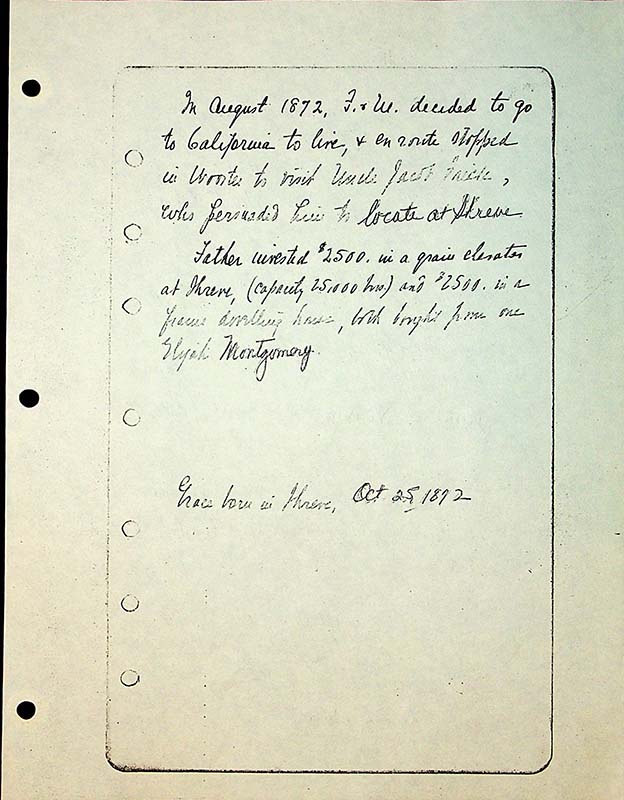 In August 1872, F. & M. decided to go
to California to live, & en route stopped
in Wooster to visit Uncle Jacob
who persuaded him to locate at Shreve
Father invested $2500. in a grain elevator
at Shreve, (capacity 25,000 bus) and $2500. in a
frame dwelling house, both bought from one
Elijah Montgomery.
Grace born in Shreve, Oct 25 1872